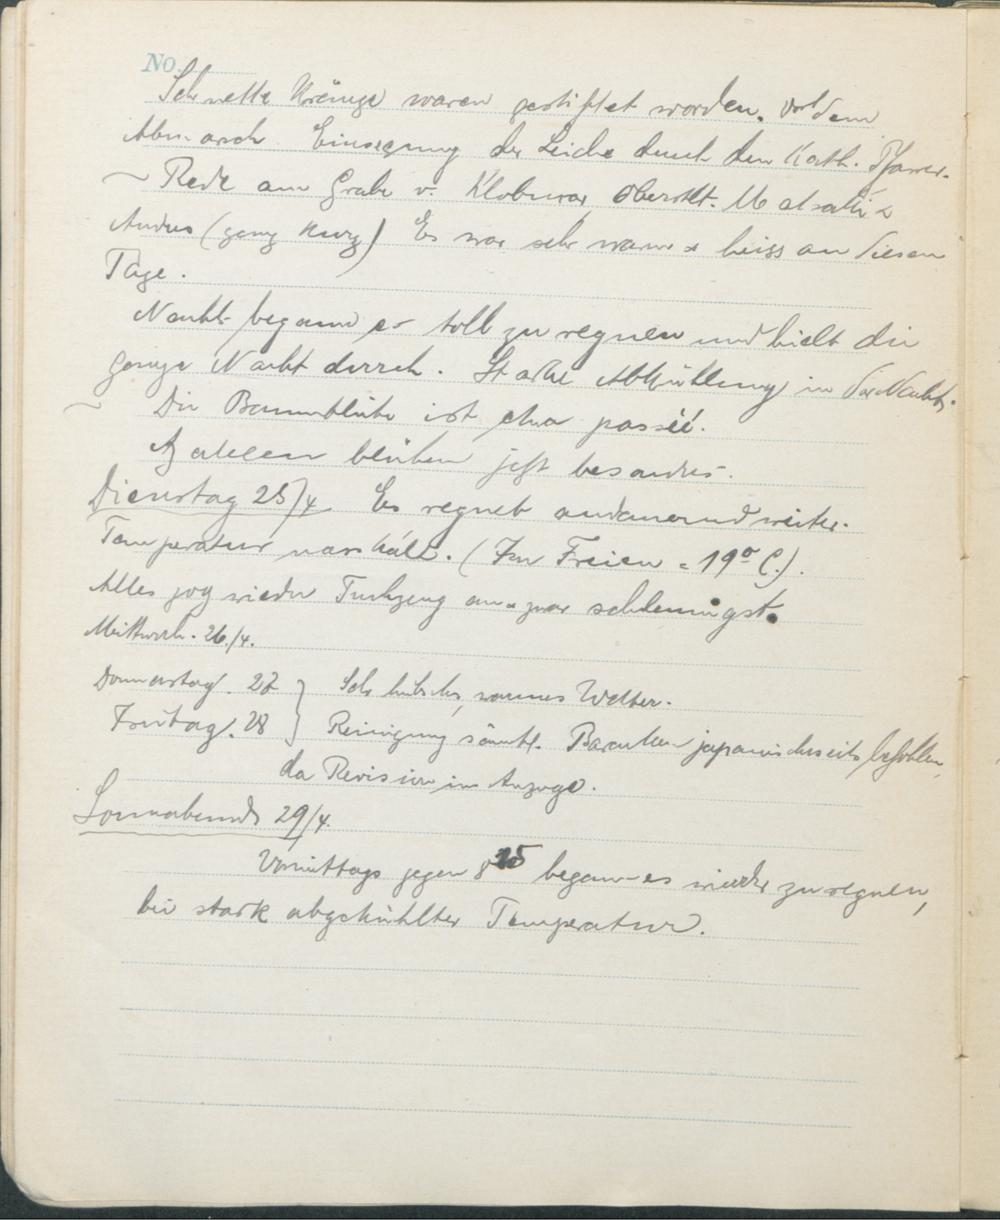 No.
Sehr nette Kränze waren gestiftet worden. Vor dem
Abmarsch Einsegnung der Leiche durch den Kath. Pfarrer.
~ Rede am Grabe v. Klobucar, Oberstlt.
Andres (ganz kurz) Es war sehr warm & heiss an diesem
Tage.
Nachts begann es toll zu regnen und hielt die
ganze Nacht durch. Starke Abkühlung in der Nacht.
~ Die Baumblüte ist passé.
Azaleen blühen jetzt besonders.
Dienstag 25/4 Es regnet andauernd weiter.
Temperatur nasskalt. (Im Freien = 19° C.).
Alles zog wieder Tuchzeug an & zwar schleunigst.
Mittwoch. 26./4.
Donnerstag. 27 } Sehr hübsches, warmes Wetter.
Freitag. 28 } Reinigung sämtl. Baracken japanischerseits befohlen,
da Revision im Anzuge.
Sonnabend 29/4.
Vormittags gegen 8 25 begann es wieder zu regnen,
bei stark abgekühlter Temperatur.